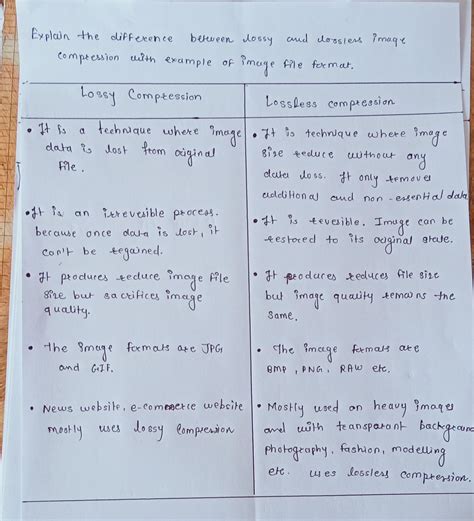 Explain the difference between lossy and lossless image
compression with example of image file format.
Lossy Compression
• It is a technique where image
data is lost from original
file.
• It is an irreversible process.
because once data is lost, it
con't be regained.
• It produces reduce image file
size but sacrifices image
quality.
• The image formats are JPG
and GIF.
• News website, e-commerce website
mostly uses lossy compression
Lossless compression
• It is technique where image
size reduce without any
data loss. It only removes
additional and non-essential data
• It is reversible. Image can be
restored to its original state.
It produces reduces file size
but image quality remains the
same.
• The image formats are
BMP, PNG, RAW etc.
• Mostly used on heavy images
and with transparant background
photography, fashion, modelling
etc. uses lossless compression.